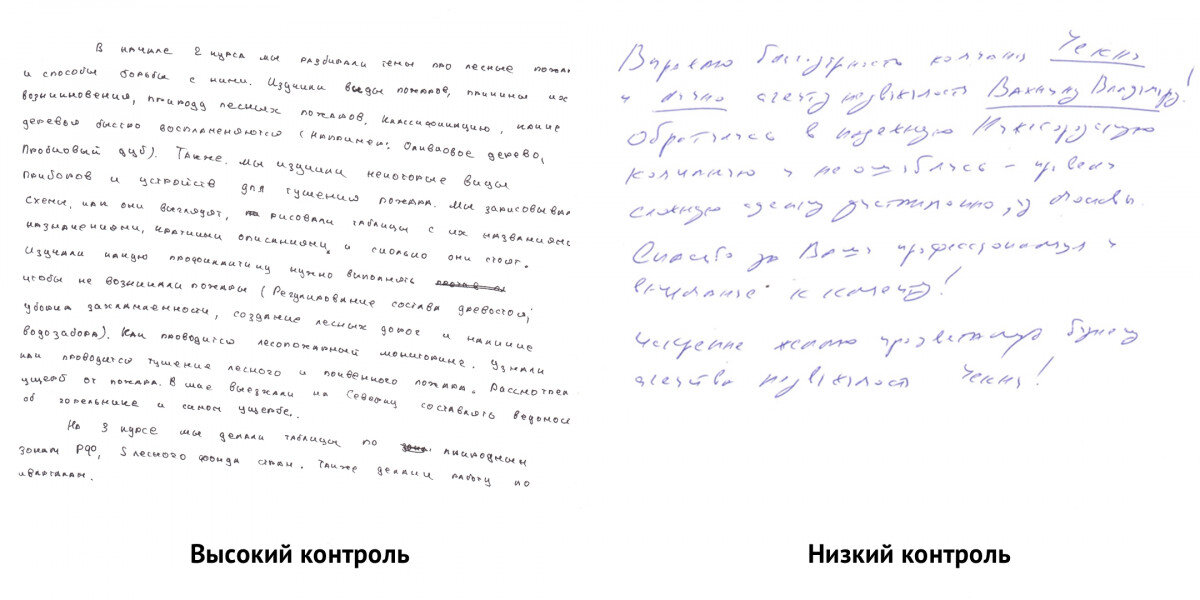 В начале 2 курса мы разбирали темы про лесные пожар
и способы борьбы с ними. Изучили виды пожаров, причины их
возникновения, природу лесных пожаров. Классификацию, какие
деревья быстро воспламеняются (Например: Оливковое дерево,
Пробковый дуб). Также мы изучили некоторые виды
приборов и устройств для тушения пожара. Мы зарисовывал
схемы, как они выглядят, рисовали таблицы с их названиями
назначениями, краткими описаниями и сколько они стоят.
Изучали какую профилактику нужно выполнять
чтобы не возникали пожары (Регулирование состава древостоя,
уборка захламленности, создание лесных дорог и наличие
водозабора). Как проводится лесопожарный мониторинг. Узнали
как проводится тушение лесного и почвенного пожара. Рассмотрели
ущерб от пожара. В мае выезжали на составлять ведомос
об горельнике и самом ущербе.
На 3 курсе мы делали таблицы по природным
зонам РФ, лесного фонда стран. Также делали работу по
кварталам.
Выражаю благодарность компании Чекни
и лично агенту недвижимость Вахнину Владимиру!
Обратилась в надежную Нижегородскую
компанию и не ошиблась - провели
сложную сделку дистанционно, из Москвы.
Спасибо за Ваш профессионализм и
внимание к клиенту!
Искренне желаю процветания бизнесу
агентства недвижимость Чекни!
Высокий контроль
Низкий контроль